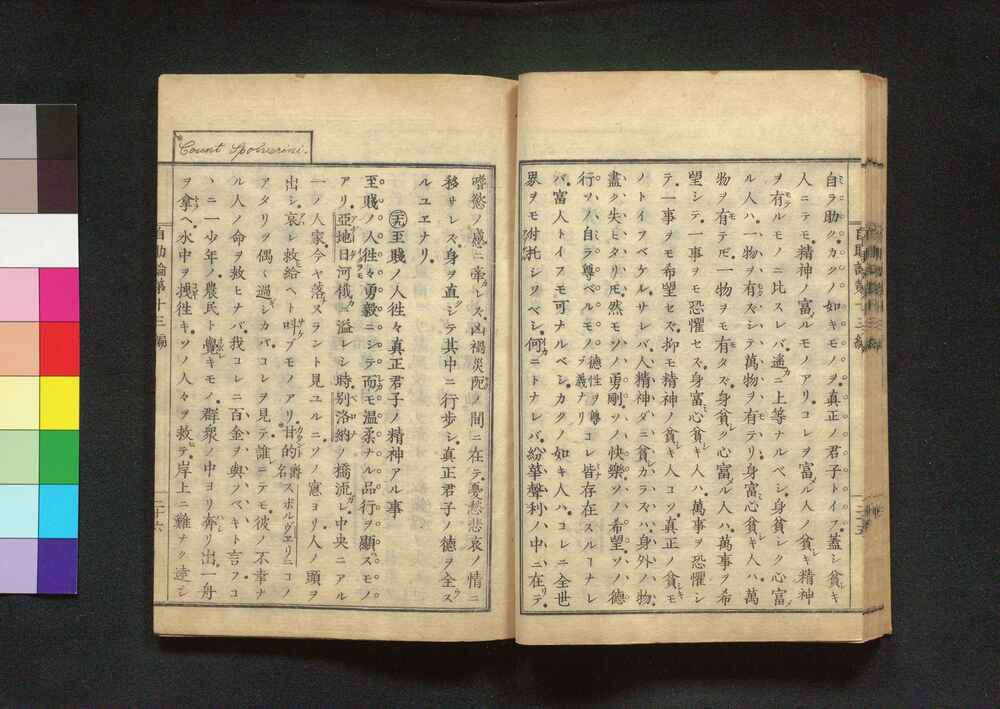 自ラ助ク、カクノ如キモノヲ、真正ノ君子トイフ、蓋シ貧キ
人ニテモ、精神ノ富ルモノアリ、コレヲ富ル人ノ貧キ精神
ヲ有ルモノニ比スレバ、遙ニ上等ナルベシ、身貧シク心富
ル人ハ、一物ヲ有タズシテ萬物ヲ有テリ、身富心貧キ人ハ、萬
物ヲ有テドモ一物ヲモ有タズ、身貧ク心富ル人ハ、萬事ヲ希
望シテ、一事ヲモ恐懼セズ、身富心貧キ人ハ、萬事ヲ恐懼シ
テ、一事ヲモ希望セズ、抑モ精神ノ貧キ人コソ、真正ノ貧モ
ノトイフベケレ、サレバ、人精神ダニ貧カラズハ、身外ノ物、
盡ク失モタリトモ、然モソノ勇剛、ソノ快樂、ソノ希望、ソノ德
行、ソノ自ラ尊ベルモノ、德性ヲ尊ブ義ナリ、コレ皆存在スルヿナレ
バ、富人トイフモ可ナルベシ、カクノ如キ人ハ、コレニ全世
界ヲモ付托シツベシ、何ニトナレバ、紛華聲利ノ中ニ在テ、
Count Spolverini.
嗜慾ノ惑ニ牽レズ、凶禍災配ノ間ニ在テ、憂愁悲哀ノ情ニ
移サレズ、身ヲ直シテ其中ニ行歩シ、真正君子ノ德ヲ全ス
ルユエナリ、
至賤ノ人徃々真正君子ノ精神アル事
至賤ノ人、徃々勇毅ニシテ而モ溫柔ナル品行ヲ顯スモノ
アリ、亞地日河俄ニ溢レシ時、別洛納ノ橋流レ、中央ニアル
一ノ人家、今ヤ落ズラント見ユルニ、ソノ窻ヨリ、人ノ頭ヲ
出シ、哀レ救給ヘト呌ブモノアリ、甘的爵名スポルヴエリニコノ
アタリヲ偶々過シカバ、コレヲ見テ、誰ニテモ彼ノ不幸ナ
ル人ノ命ヲ救モナバ、我コレニ百金ヲ與ソベキト言フコ
、ニ一少年ノ農民ト覺キモノ、群衆ノ中ヨリ奔リ出、一舟
ヲ拿ヘ、水中ヲ拽徃キ、ソノ人々ヲ救テ、岸上ニ難ナク達シ
自助論第十三編
二十六